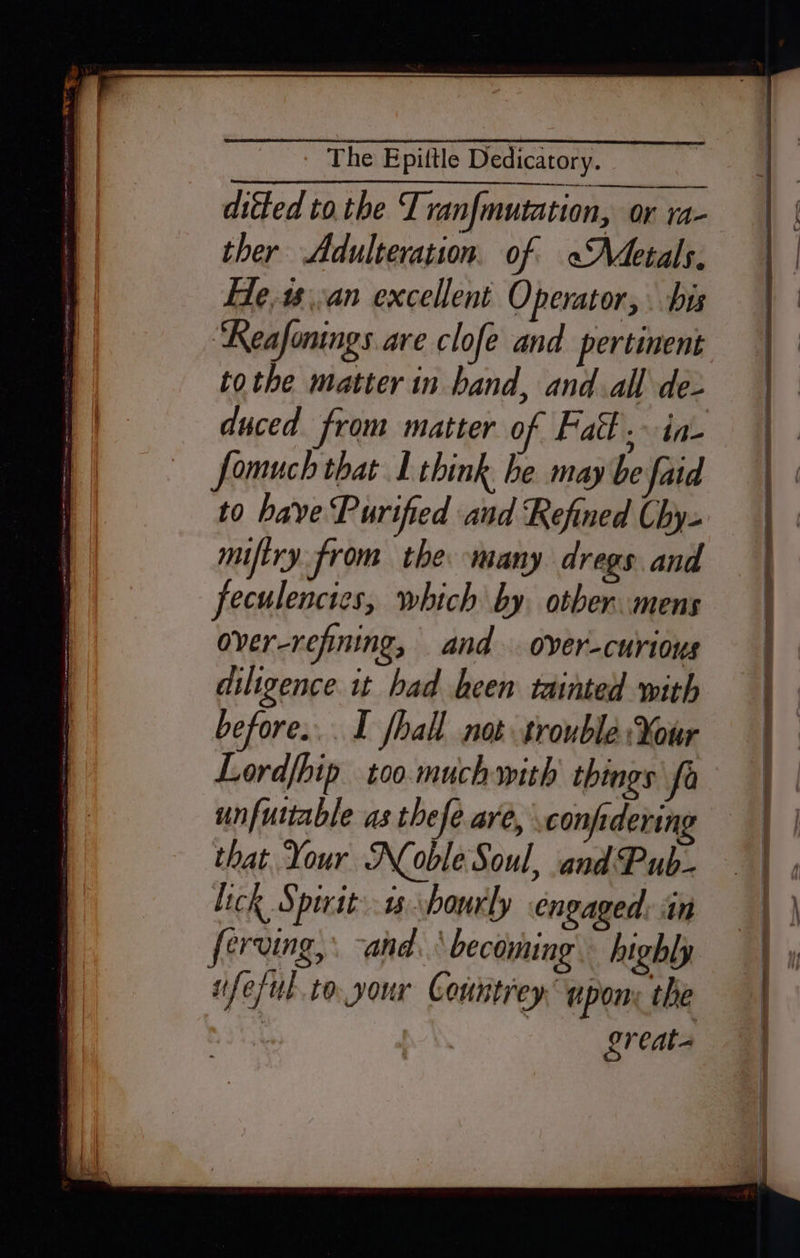 The Epiſtle Dedicatory.
dicted to the Tranſmutation, or ra-
ther Adulteration of Metals.
He is an excellent Operator, his
Reaſonings are cloſe and pertinent
to the matter in hand, and all de-
duced from matter of Fact; in-
ſomuch that I think he may be ſaid
to have Purified and Refined Chy-
miſtry from the many dregs and
feculencies, which by other mens
over-refining, and over-curious
diligence it had been tainted with
before. I ſhall not trouble Your
Lordſhip too much with things ſo
unſuitable as theſe are, conſidering
that Your Noble Soul, and Pub-
lick Spirit is hourly engaged in
ſerving, and becoming highly
uſeful to your Countrey upon the
great-